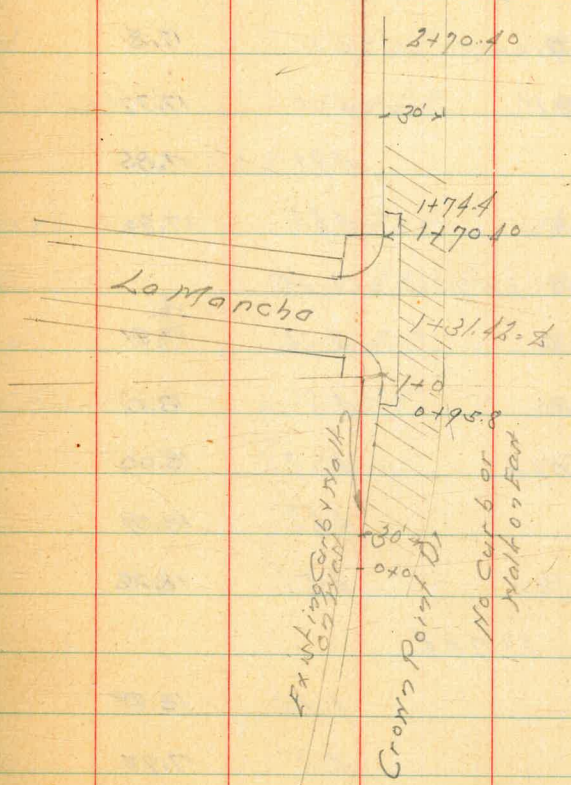 2+70.40
30'±
1+74.4
1+70.40
La Mancha
1+31.42 = ℄
1+0
0+95.8
30'±
0+0
Existing Curb & Walk
on West
Crown Point Dr
No Curb or
Walk on East